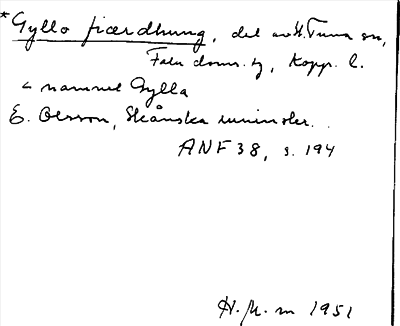 *Gylla fiærdhung, del av St. Tuna sn,
Falu doms. h, Kopp. l.
< namnet Gylla
E. Olsson, Skånska runinskr.
ANF 38, s. 194
H. M. m 1951